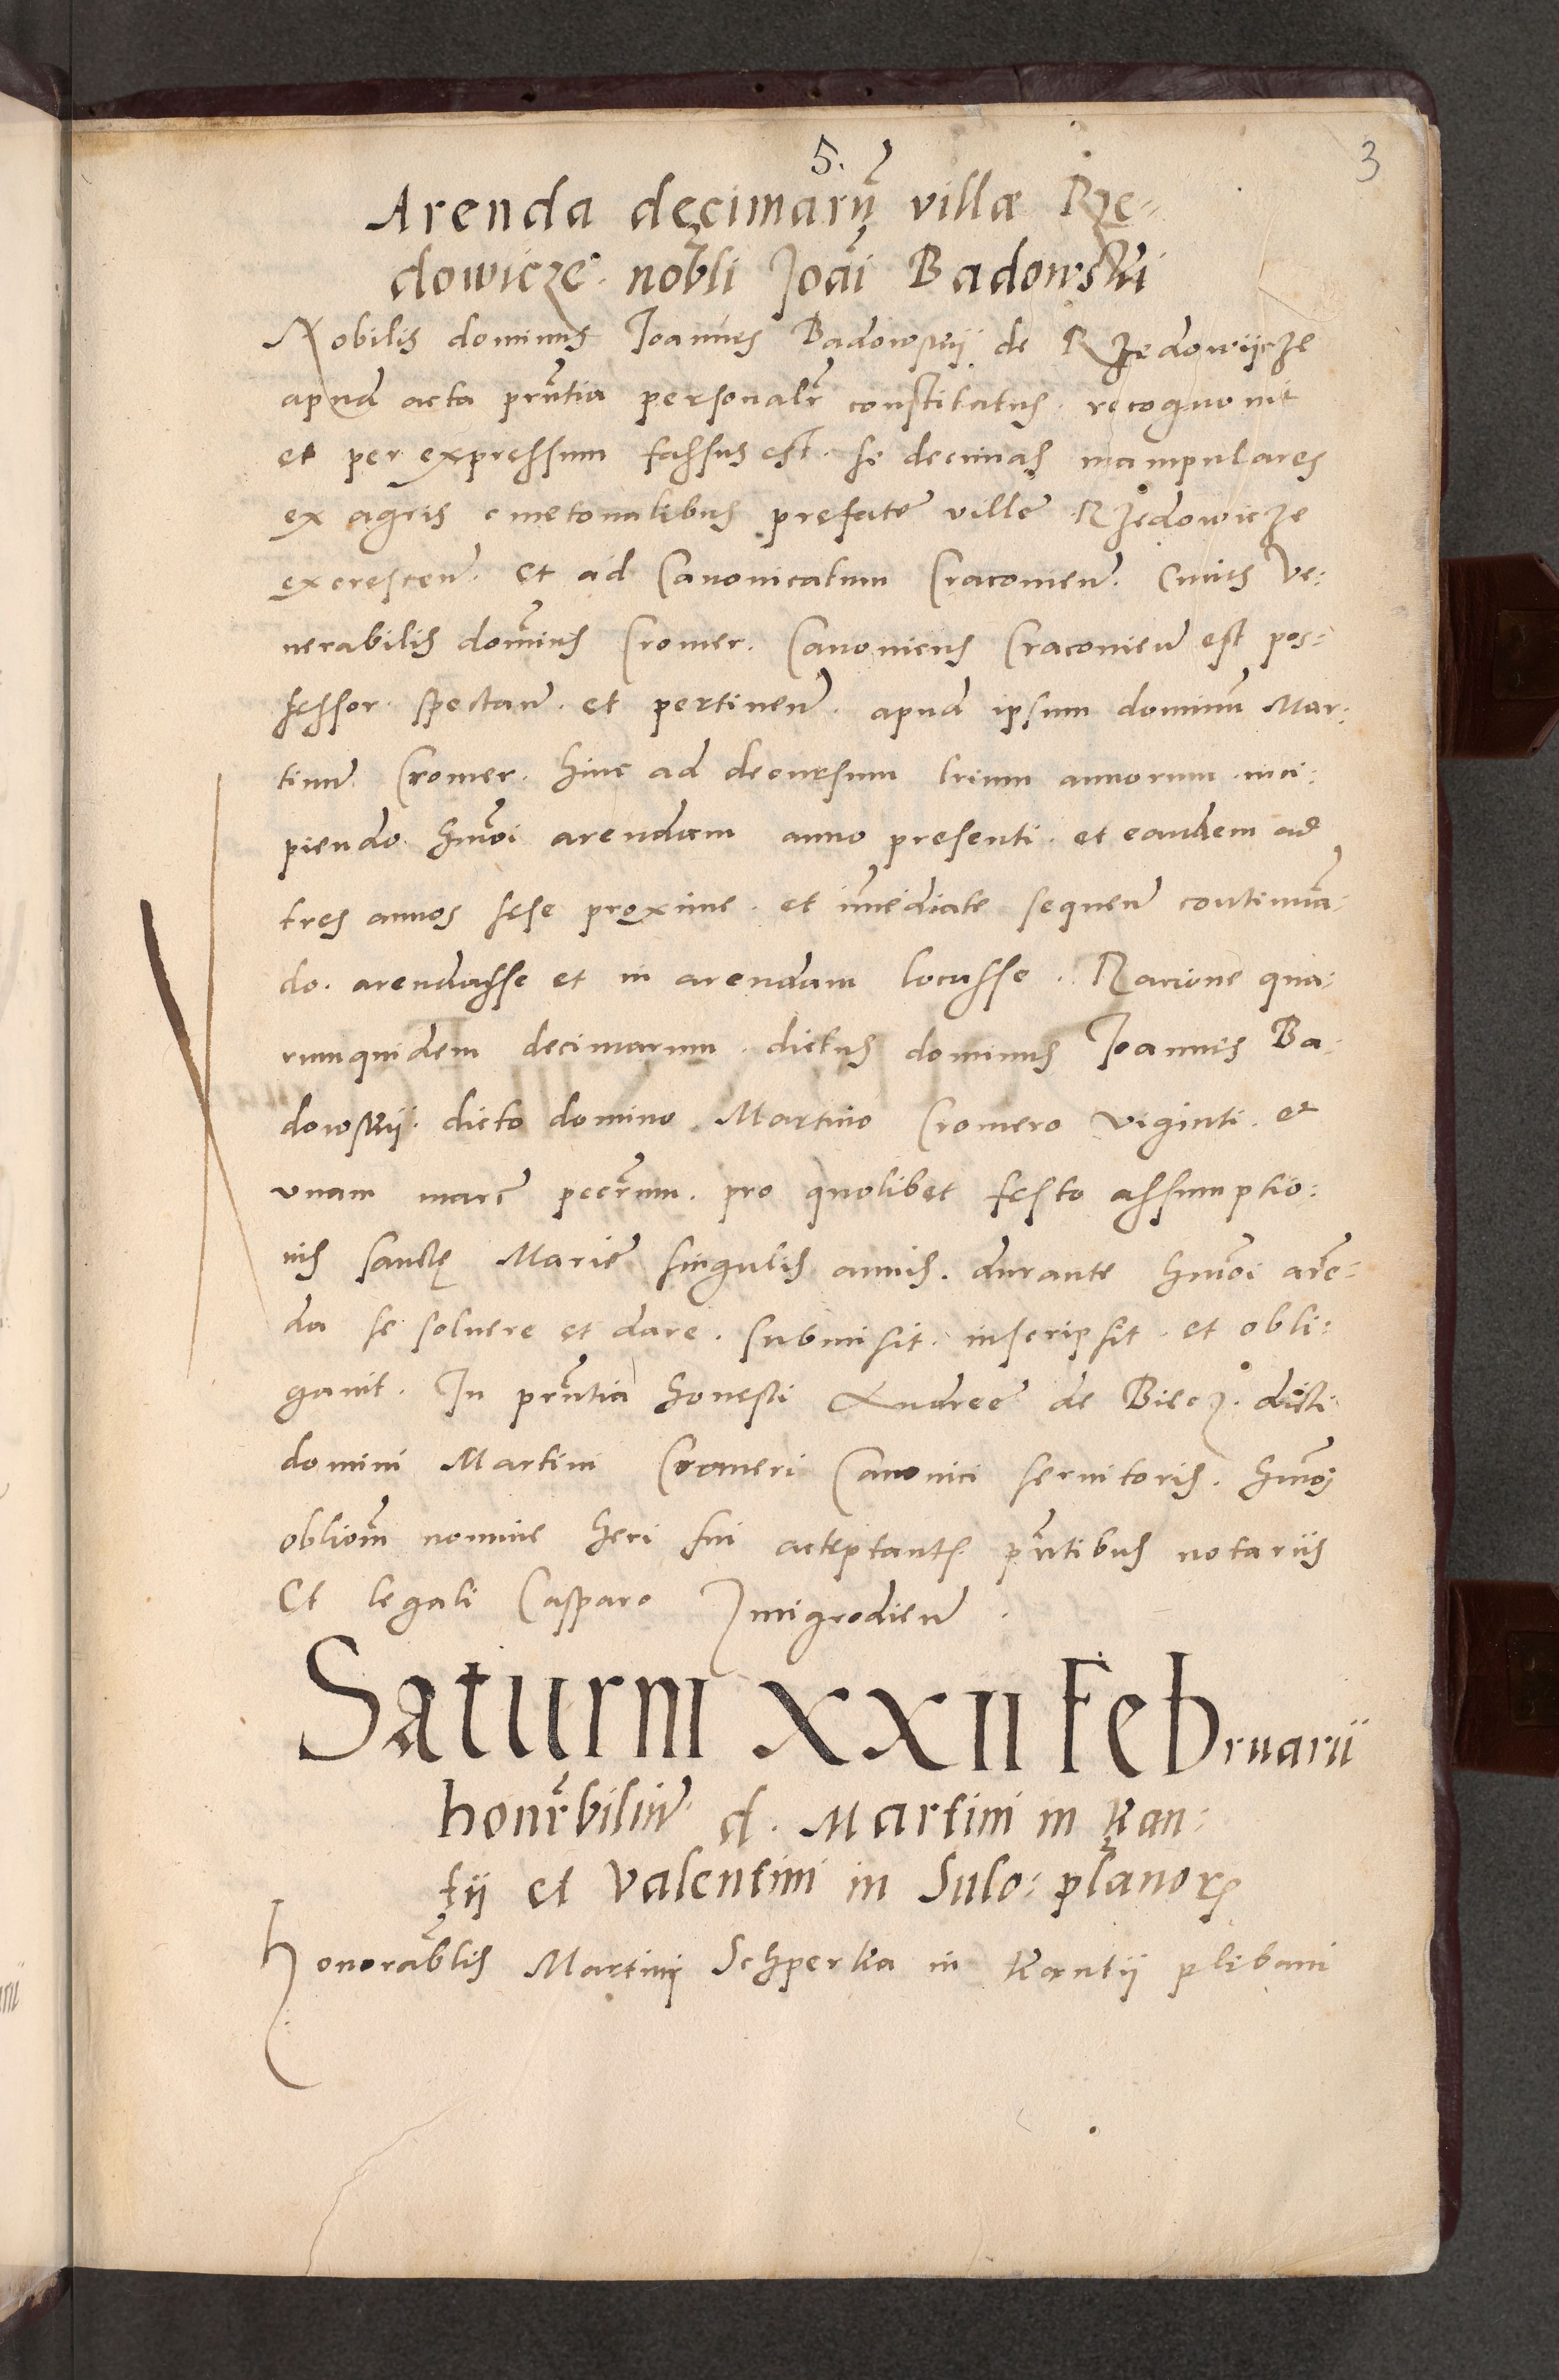 5.
3
Arenda decimarũ villæ Rze-
dowicze nobli Joãi Badowskii
Nobilis dominus Joannes Badowskij de Rzedowijcze
apud acta prñtia personalr constitutus. recognouit
et per expressum fassus est. se decimas manipulares
ex agris cmetonalibus prefate ville Rzedowicze
excrescen. et ad Canonicatum Cracouien. Cuius Ve:
nerabilis dominus Cromer. Canonicus Cracouien est pos:
sessor. spectan. et pertinen. apud ipsum dominũ Mar:
tinũ Cromer. hinc ad decursum trium annorum inci:
piendo hmõi arendam anno presenti. et eandem ad
tres annos sese proxime. et imediate sequen continuã:
do. arendasse et in arendam locasse. Racione qua:
rumquidem decimarum. dictus dominus Joannes Ba:
dowskij. dicto domino Martino Cromero viginti. et
vnam marc pecrum. pro quolibet festo assumptio:
nis sanctę Marie singulis annis. durante hmõi arẽ:
da se soluere et dare. submisit. inscripsit. et obli:
gauit. In prñtia honesti Andree de Biecz. dicti
domini Martini Cromeri Canonici seruitoris. hmõj
obliom nomine heri sui acceptant. prñtibus notariis
Et legali Casparo Jmigrodien.
Saturni XXII Februarii
honrbiliũ d. Martini in Kan:
tij et Valentini in Sulo: planor
Honorablis Martini Schperka in Kantij plibani